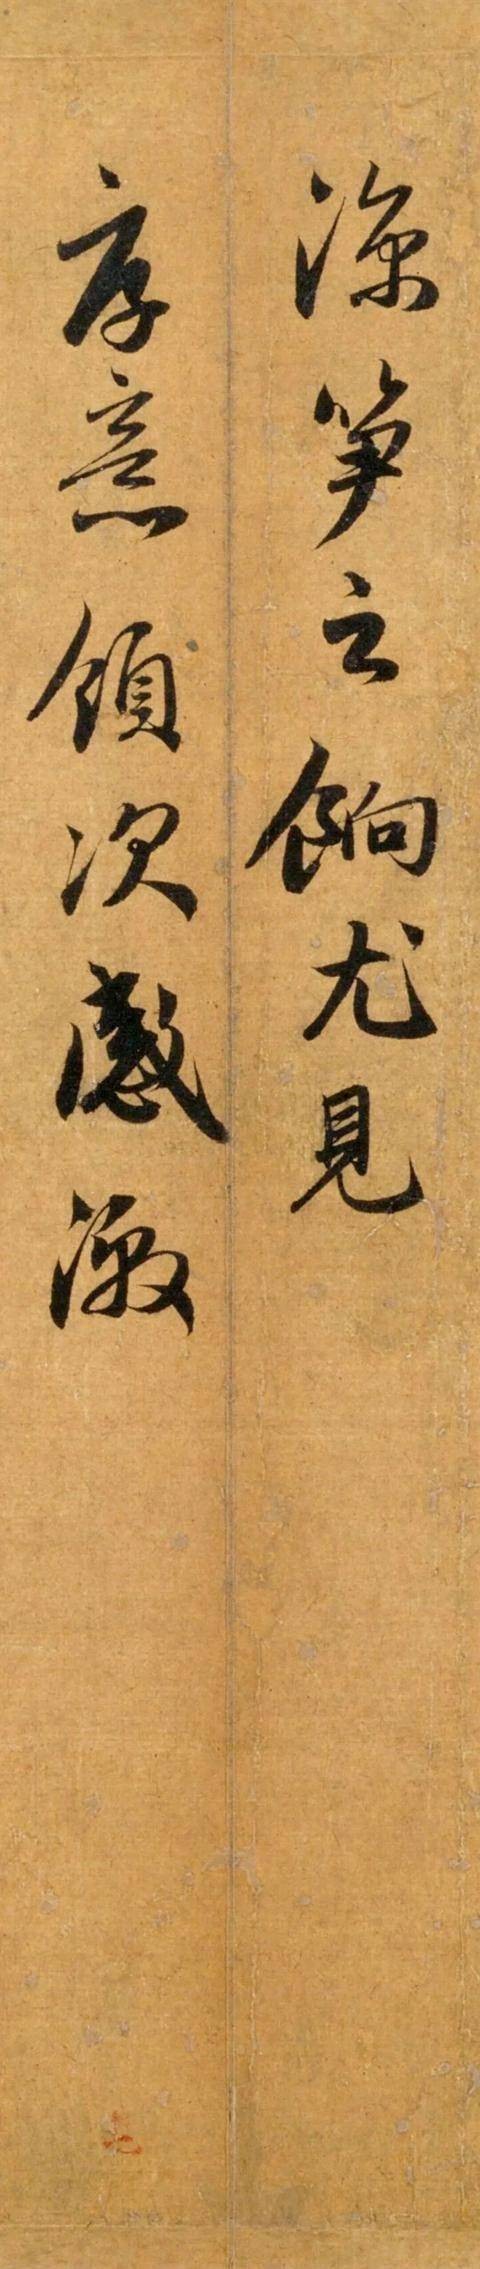 凉笋之餉尤見
厚意領次感激